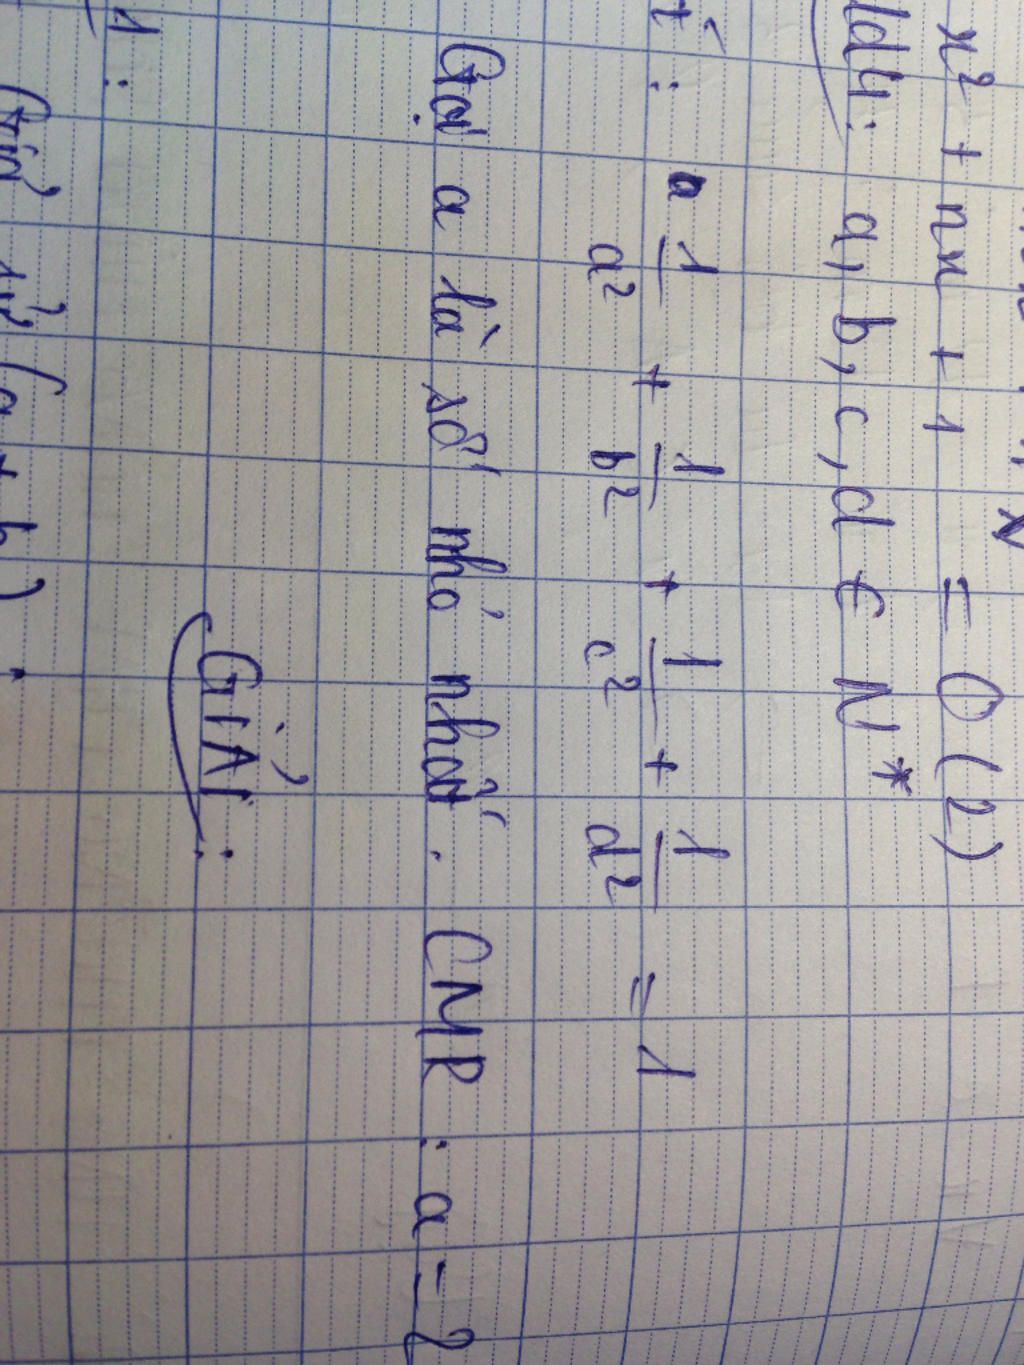 x² + nx + 1 = 0 (2)
Bd4: a, b, c, d ∈ N*
1/a² + 1/b² + 1/c² + 1/d² = 1
Gọi a là số nhỏ nhất. CMR : a = 2
GIẢI:
1 :
Giả sử (a + b)